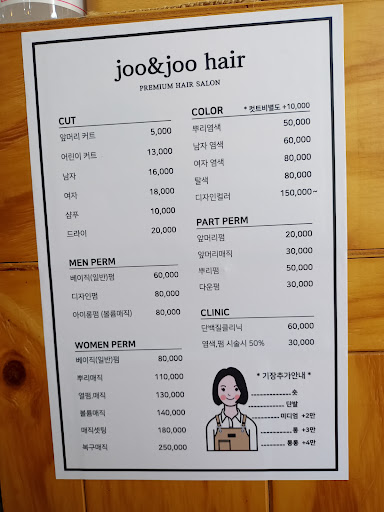 joo&joo hair
PREMIUM HAIR SALON
CUT
앞머리 커트 5,000
어린이 커트 13,000
남자 16,000
여자 18,000
샴푸 10,000
드라이 20,000
MEN PERM
베이직(일반)펌 60,000
디자인펌 80,000
아이롱펌 (볼륨매직) 80,000
WOMEN PERM
베이직(일반)펌 80,000
뿌리매직 110,000
열펌,매직 130,000
볼륨매직 140,000
매직셋팅 180,000
복구매직 250,000
COLOR * 컷트비별도 +10,000
뿌리염색 50,000
남자 염색 60,000
여자 염색 80,000
탈색 80,000
디자인컬러 150,000~
PART PERM
앞머리펌 20,000
앞머리매직 30,000
뿌리펌 50,000
다운펌 30,000
CLINIC
단백질클리닉 60,000
염색,펌 시술시 50% 30,000
* 기장추가안내 *
숏
단발
미디엄 +2만
롱 +3만
롱롱 +4만